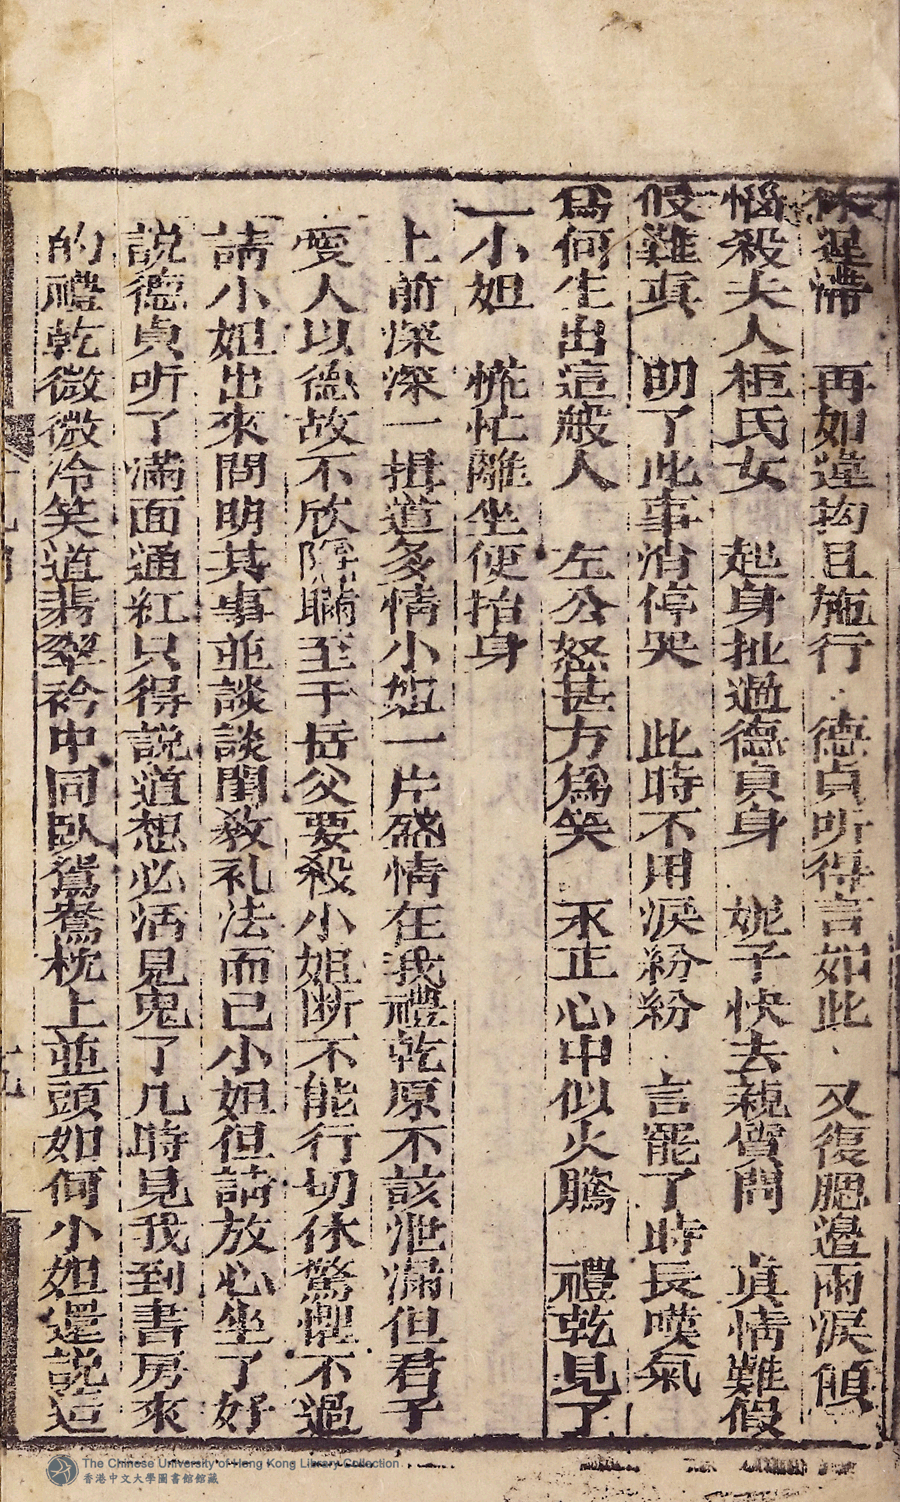 休遲滯　再如違拘且施行　德貞听得言如此　又復腮邊雨淚傾
惱殺夫人柜氏女　起身扯過德貞身　妮子快去親質問　真情難假
假難真　明了此事消停哭　此時不用淚紛紛　言罷了時長嘆氣
爲何生出這般人　左公怒甚方爲笑　永正心中似火騰　禮乾見了
一小姐　慌忙離坐便抬身
上前深深一揖道多情小姐一片盛情在我禮乾原不該泄漏但君子
愛人以德故不欣隱瞞至于岳父要殺小姐断不能行切休驚惶不過
請小姐出來問明其事並談談閨教礼法而已小姐但請放心坐了好
説德貞听了滿面通紅只得説道想必活見鬼了几時見我到書房來
的禮乾微微冷笑道翡翠衿中同臥鴛鴦枕上並頭如何小姐還説這
The Chinese University of Hong Kong Library Collection
香港中文大學圖書館館藏